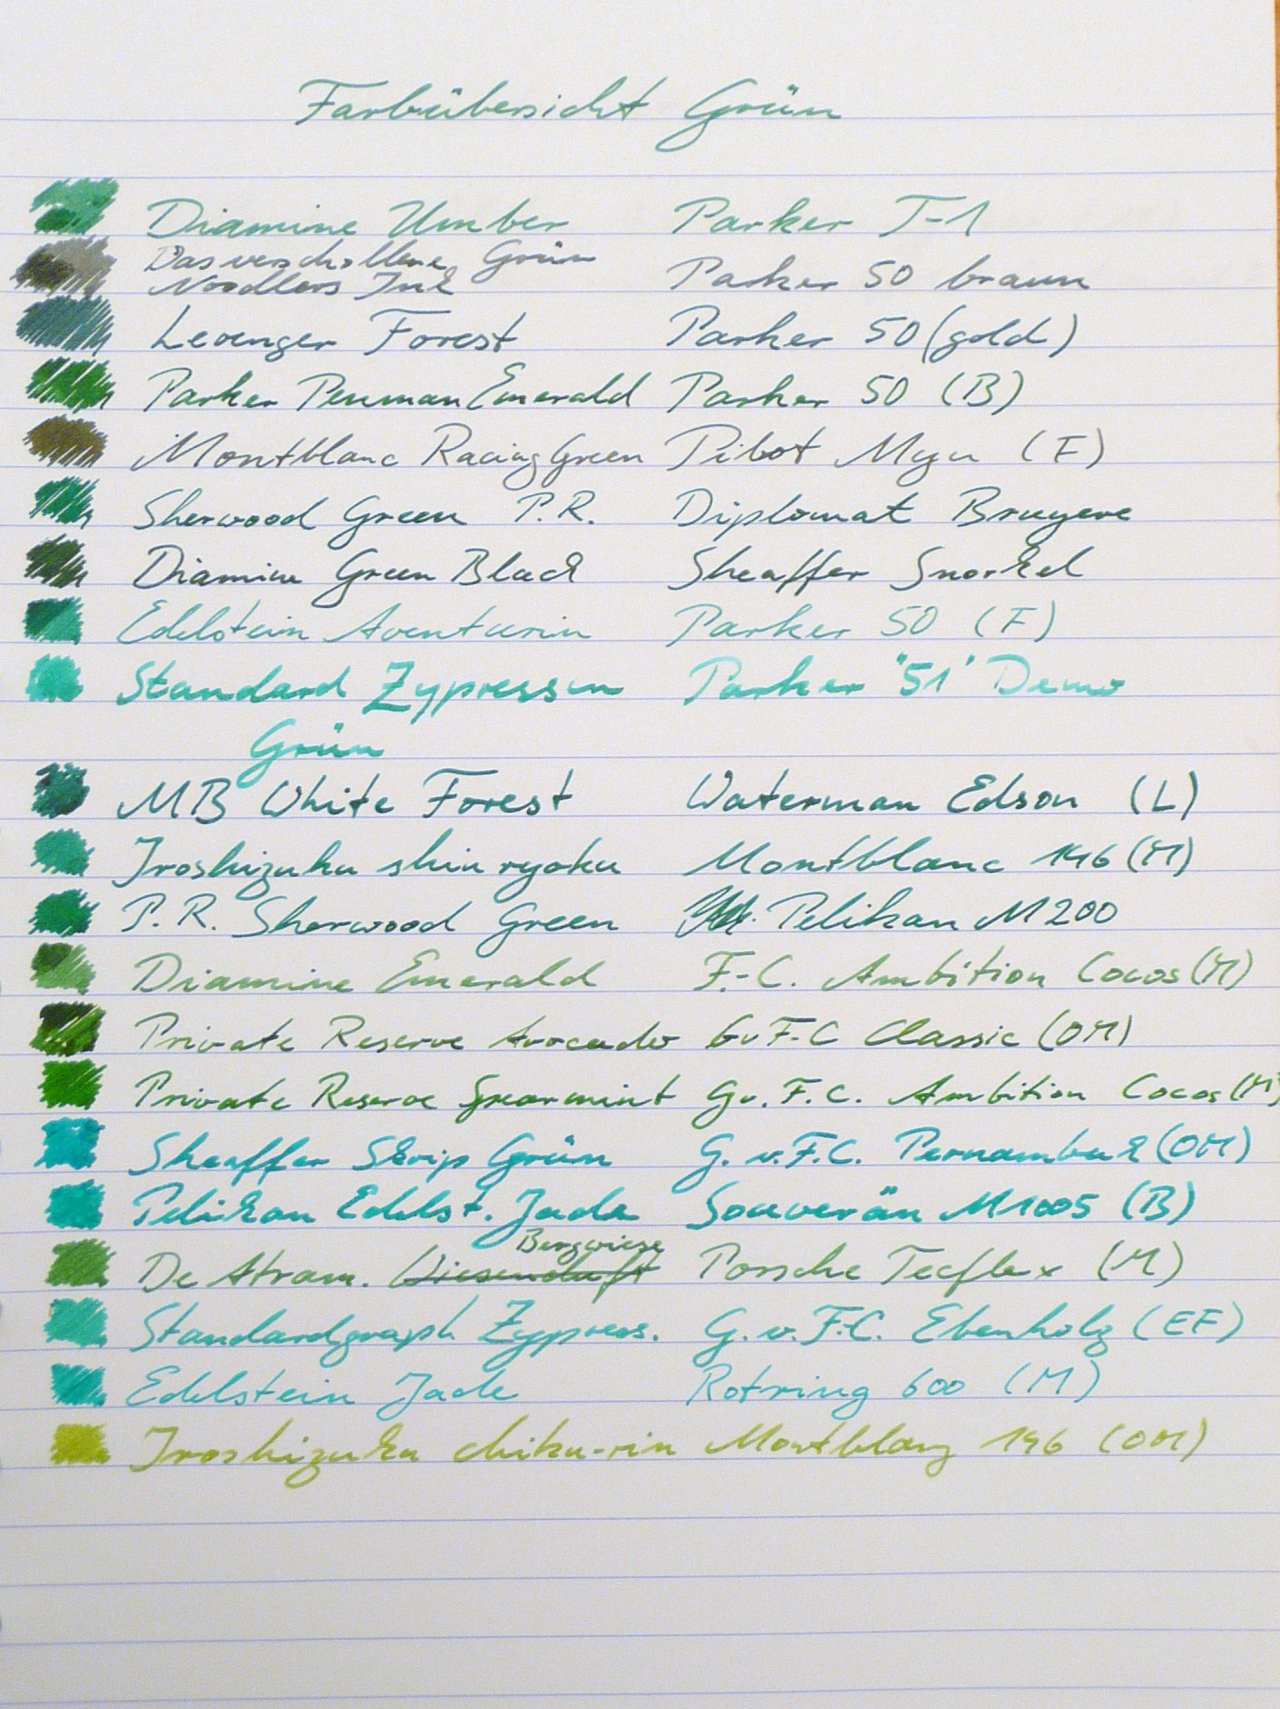 Farbübersicht Grün
Diamine Umber Parker T-1
Das verschollene Grün
Noodlers Ink Parker 50 braun
Levenger Forest Parker 50 (gold)
Parker Penman Emerald Parker 50 (B)
Montblanc Racing Green Pilot Myu (F)
Sherwood Green P.R. Diplomat Bruyere
Diamine Green Black Sheaffer Snorkel
Edelstein Aventurin Parker 50 (F)
Standard Zypressen Parker "51" Demo
Grün
MB White Forest Waterman Edson (L)
Iroshizuku shin ryoku Montblanc 146 (M)
P.R. Sherwood Green Pelikan M200
Diamine Emerald F.-C. Ambition Cocos (M)
Private Reserve Avocado GvF-C Classic (OM)
Private Reserve Spearmint Gv.F.C. Ambition Cocos (M)
Sheaffer Skrip Grün G.v.F.C. Pernambuk (OM)
Pelikan Edelst. Jade Souverän M1005 (B)
Bergwiese
De Atram. Wiesenduft Porsche Tecflex (M)
Standardgraph Zypress. G.v.F.C. Ebenholz (EF)
Edelstein Jade Rotring 600 (M)
Iroshizuku chiku-rin Montblanc 146 (OM)